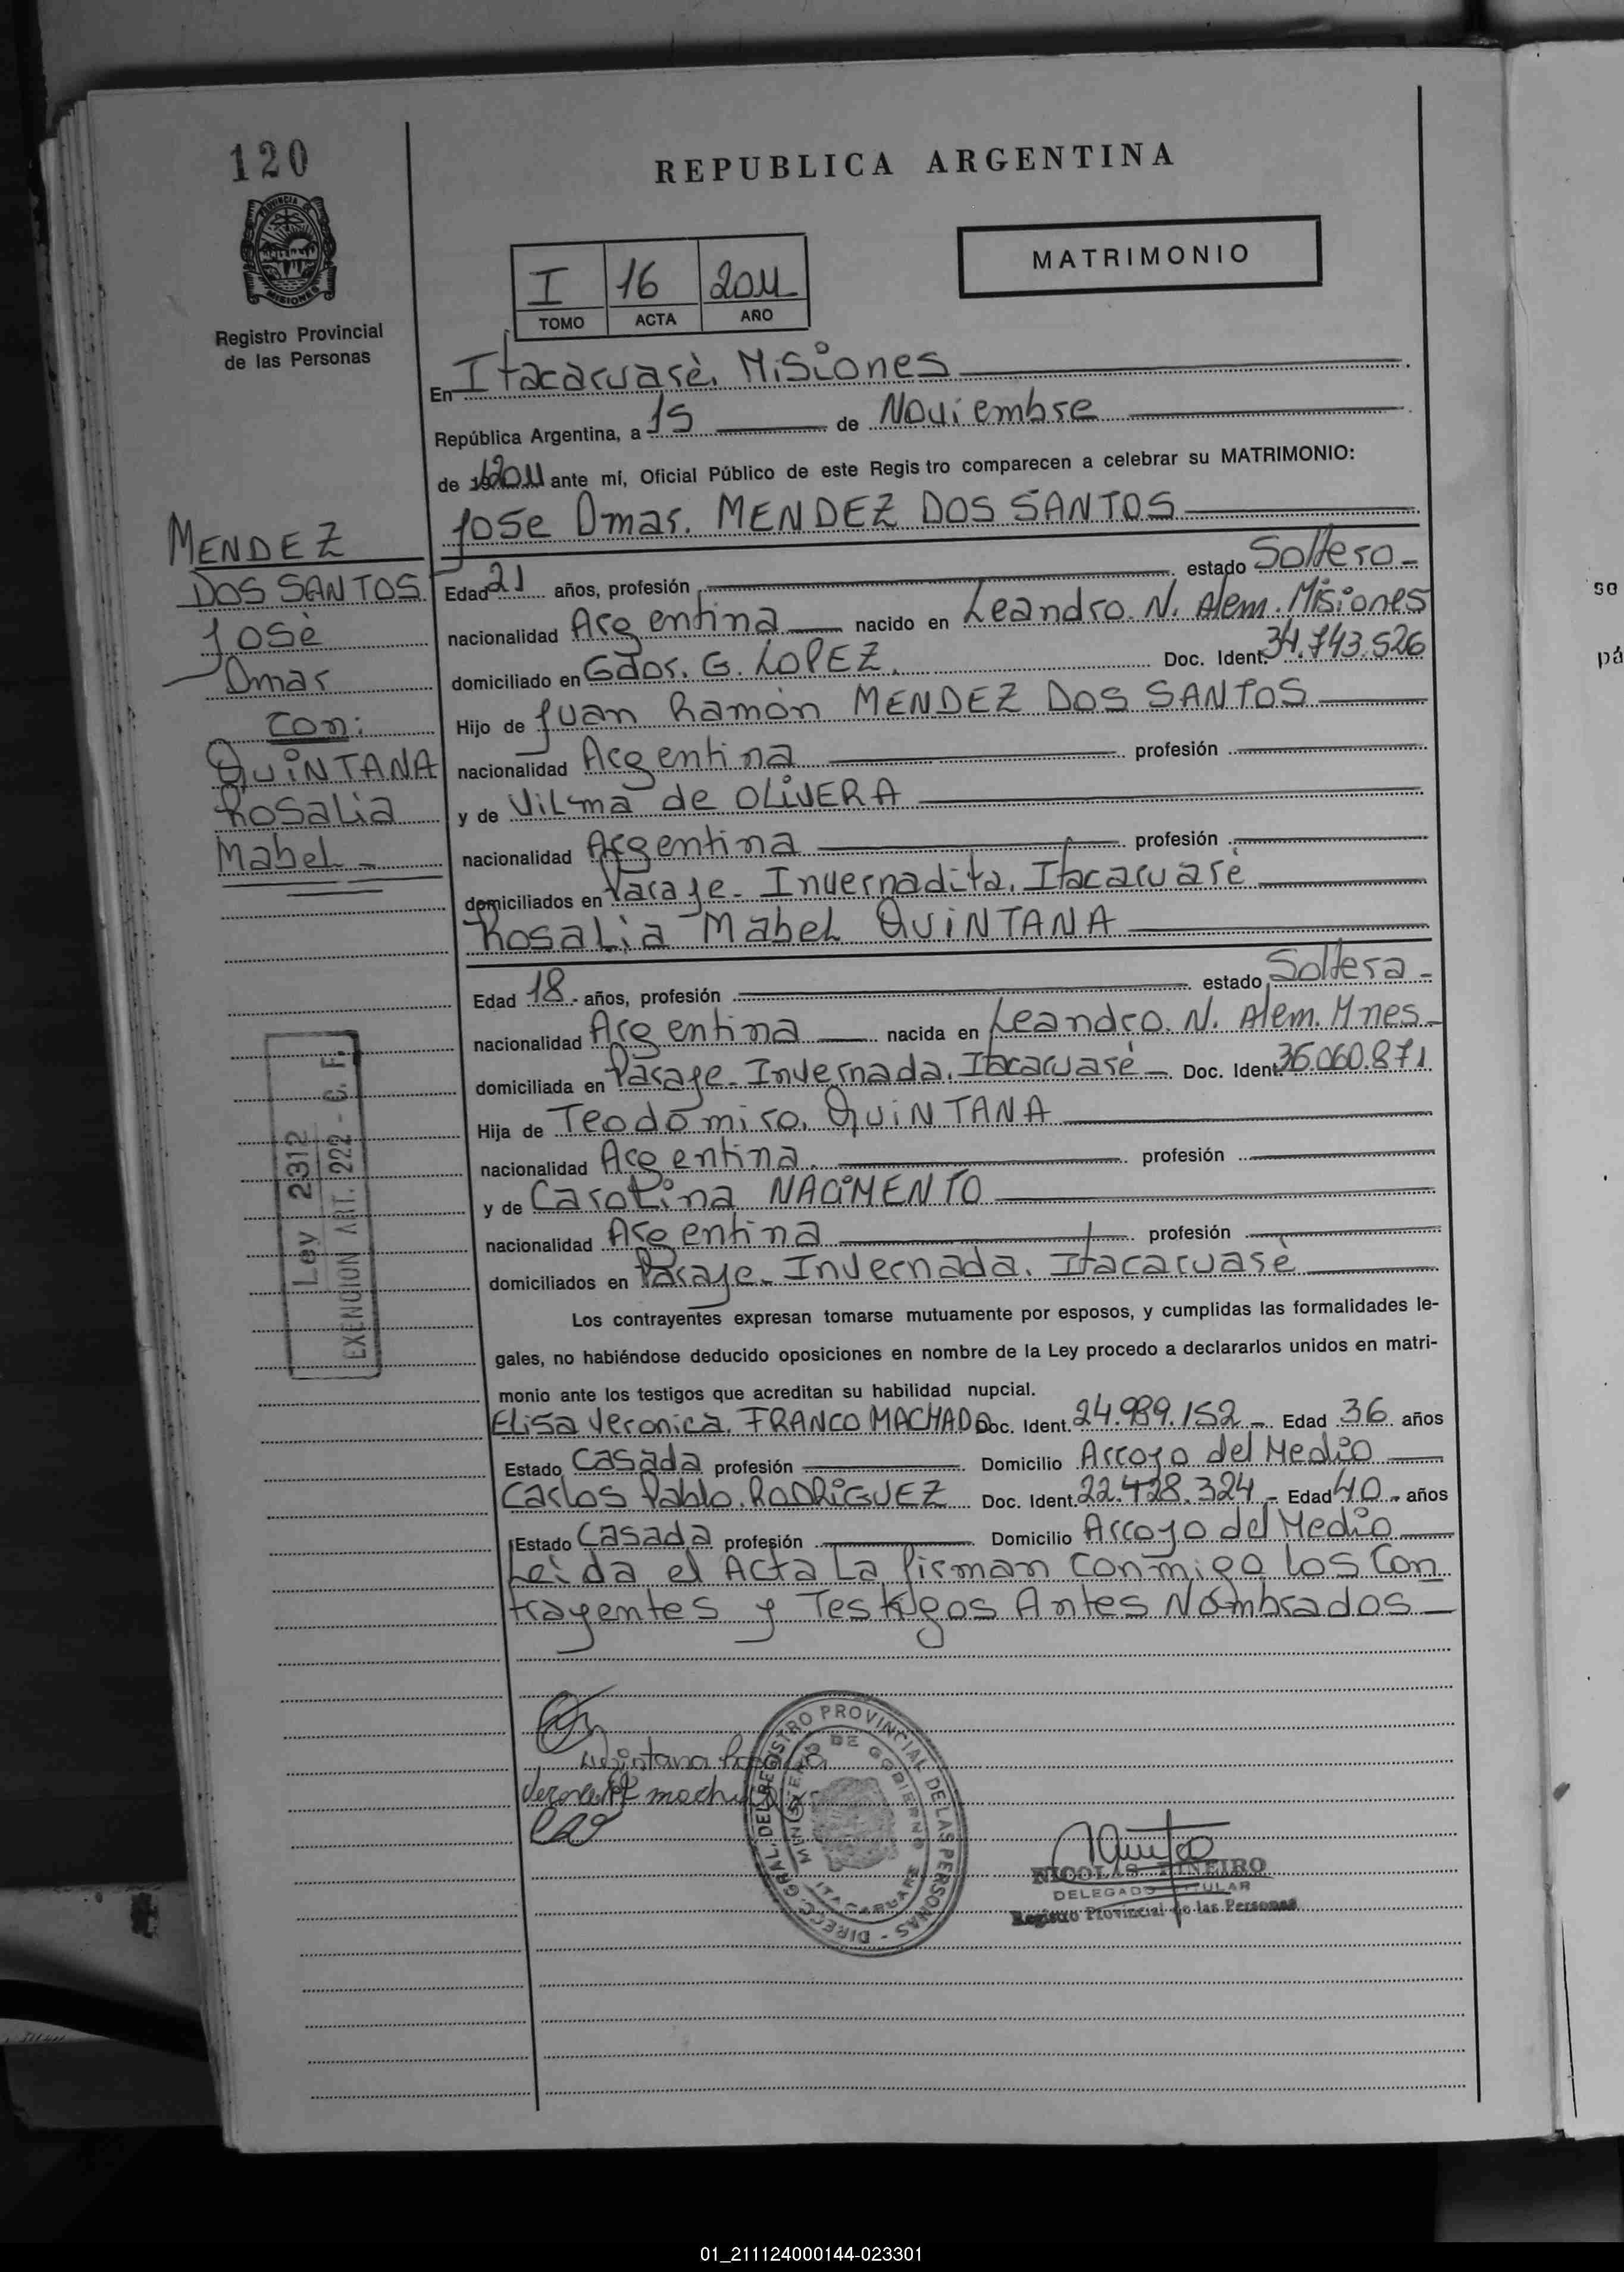 120
REPUBLICA ARGENTINA
PROVINCIA DE
MISIONES
MATRIMONIO
I 16 2011
TOMO ACTA AÑO
Registro Provincial
de las Personas
En Itacaruasè, Misiones
República Argentina, a 15 de Noviembre
de 2011 ante mi, Oficial Público de este Regis tro comparecen a celebrar su MATRIMONIO:
Jose Omar. MENDEZ DOS SANTOS
MENDEZ
DOS SANTOS
Josè
Omar
con:
QUiNTANA
Rosalia
Mabel -
Edad 21 años, profesión estado Soltero -
nacionalidad Argentina nacido en Leandro. N. Alem. Misiones
domiciliado en Gdor. G. LOPEZ. Doc. Ident. 34.743.526
Hijo de Juan Ramòn MENDEZ DOS SANTOS
nacionalidad Argentina profesión
y de Vilma de OLiVERA
nacionalidad Argentina profesión
domiciliados en Paraje - Invernadita, Itacaruarè
Rosalia Mabel QUiNTANA
Edad 18 - años, profesión estado Soltera -
nacionalidad Argentina nacida en Leandro. N. Alem. Mnes -
domiciliada en Paraje - Invernada, Itacaruarè - Doc. Ident. 36.060.871
Hija de Teodomiro, QUiNTANA
nacionalidad Argentina. profesión
y de Carolina NACiMENTO
nacionalidad Argentina profesión
domiciliados en Paraje - Invernada. Itacaruasè
Ley 2312
EXENCION ART. 222 - C. F.
Los contrayentes expresan tomarse mutuamente por esposos, y cumplidas las formalidades le-
gales, no habiéndose deducido oposiciones en nombre de la Ley procedo a declararlos unidos en matri-
monio ante los testigos que acreditan su habilidad nupcial.
Elisa Veronica, FRANCO MACHADO Doc. Ident. 24.989.152 - Edad 36 años
Estado Casada profesión Domicilio Arroyo del Medio
Carlos Pablo. RODRiGUEZ Doc. Ident. 22.428.324 - Edad 40 - años
Estado Casada profesión Domicilio Arroyo del Medio
Leida el Acta La firman conmigo los Con
trayentes y Testigos Antes Nombrados -
Quintana Rosalia
DIRECC. GRAL. DEL REGISTRO PROVINCIAL DE LAS PERSONAS -
MINISTERIO DE GOBIERNO
ITACARUARE
NICOLAS PINEIRO
DELEGADO TITULAR
Registro Provincial de las Personas
so
pá
01_211124000144-023301